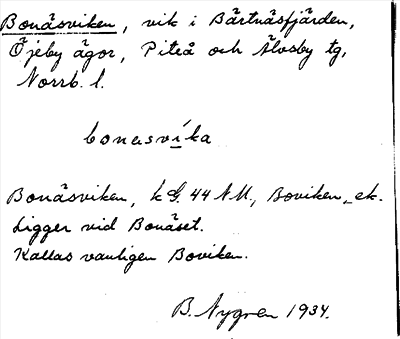 Bonäsviken, vik i Bärtnäsfjärden,
Öjeby ägor, Piteå och Älvsby tg,
Norrb. l.
bonasvíka
Bonäsviken, k G. 44 NU, Boviken, ek.
Ligger vid Bonäset.
Kallas vanligen Boviken.
B. Nygren 1934.